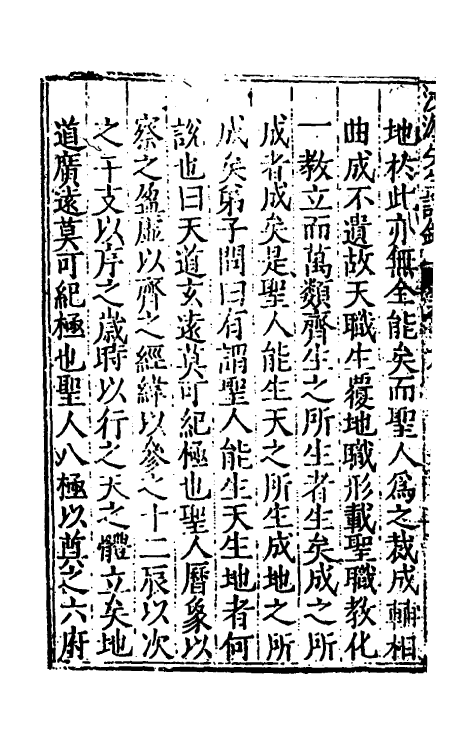 地於此亦無全能矣而聖人爲之裁成輔相
曲成不遺故天職生覆地職形載聖職教化
一教立而萬類齊生之所生者生矣成之所
成者成矣是聖人能生天之所生成地之所
成矣弟子問曰有謂聖人能生天生地者何
說也曰天道玄遠莫可紀極也聖人曆象以
察之盈虛以齊之經緯以參之十二辰以次
之干支以序之歲時以行之天之體立矣地
道廣遠莫可紀極也聖人八極以酋之六府